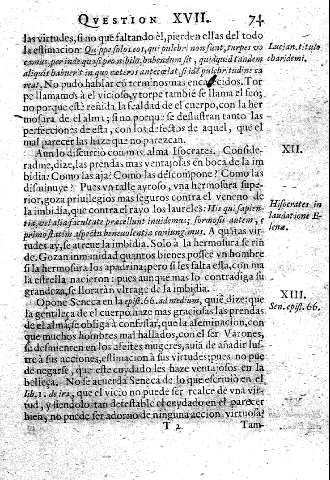 QVESTION XVII. 74
las virtudes, si no que faltando él, pierden ellas del todo
la estimacion: Quippe solo eos, qui pulchri non sunt, turpes vo
Torpe
llamamos à el vicioso, y torpe tambiẽ se llama el feo;
no porque esté reñida la fealdad de el cuerpo, con la her
mosura de el alma; si no porque se deslustran tanto las
perfecciones de esta, con los defectos de aquel, que el
mal parecer las haze que no parezcan.
Aun lo discurrió con mas alma Isocrates. Conside-
radme, dize, las prendas mas ventajosas en boca de la im
bidia: Como las aja? Como las descompone? Como las
disminuye? Pues vn talle ayroso, vna hermosura supe-
rior, goza privilegios mas seguros contra el veneno de
la imbidia, que contra el rayo los laureles: His qui sapien
tia, vel alia facultate præcellunt invidemus; formosis autem,
primo statim aspectu benevolentia coniungimus. A quantas vir-
tudes ay, se atreve la imbidia. Solo à la hermosura se rin
de. Gozan inmunidad quantos bienes possee vn hombre
si la hermosura los apadrina; pero si les falta essa, con ma
la estrella nacieron; pues aunque mas lo contradiga su
grandeza, se lloraràn vltrage de la imbidia.
Opone Seneca en la epist. 66. ad medium, quiẽ dize: que
la gentileza de el cuerpo haze mas graciosas las prendas
de el alma, se obliga à confessar, que la afeminacion, con
que muchos hombres mal hallados, con el ser Varones,
se desmienten en los afeites mugeres, aurà de añadir lus-
tre à sus acciones, estimacion à sus virtudes; pues no pue
de negarse, que este cuydado les haze ventajosos en la
belleça. No se acuerda Seneca de lo que escriviò en el
lib. 1. de ira; que el vicio no puede ser realce de vna vir-
tud, y siendolo tan detestable el cuydado en el parecer
bien, no puede ser adorno de ninguna accion virtuosa.
T 2 Tam-
Lucian. titulo
charidemi.
XII.
Hisocrates in
laudatione E-
lenæ.
XIII.
Sen. epist. 66.